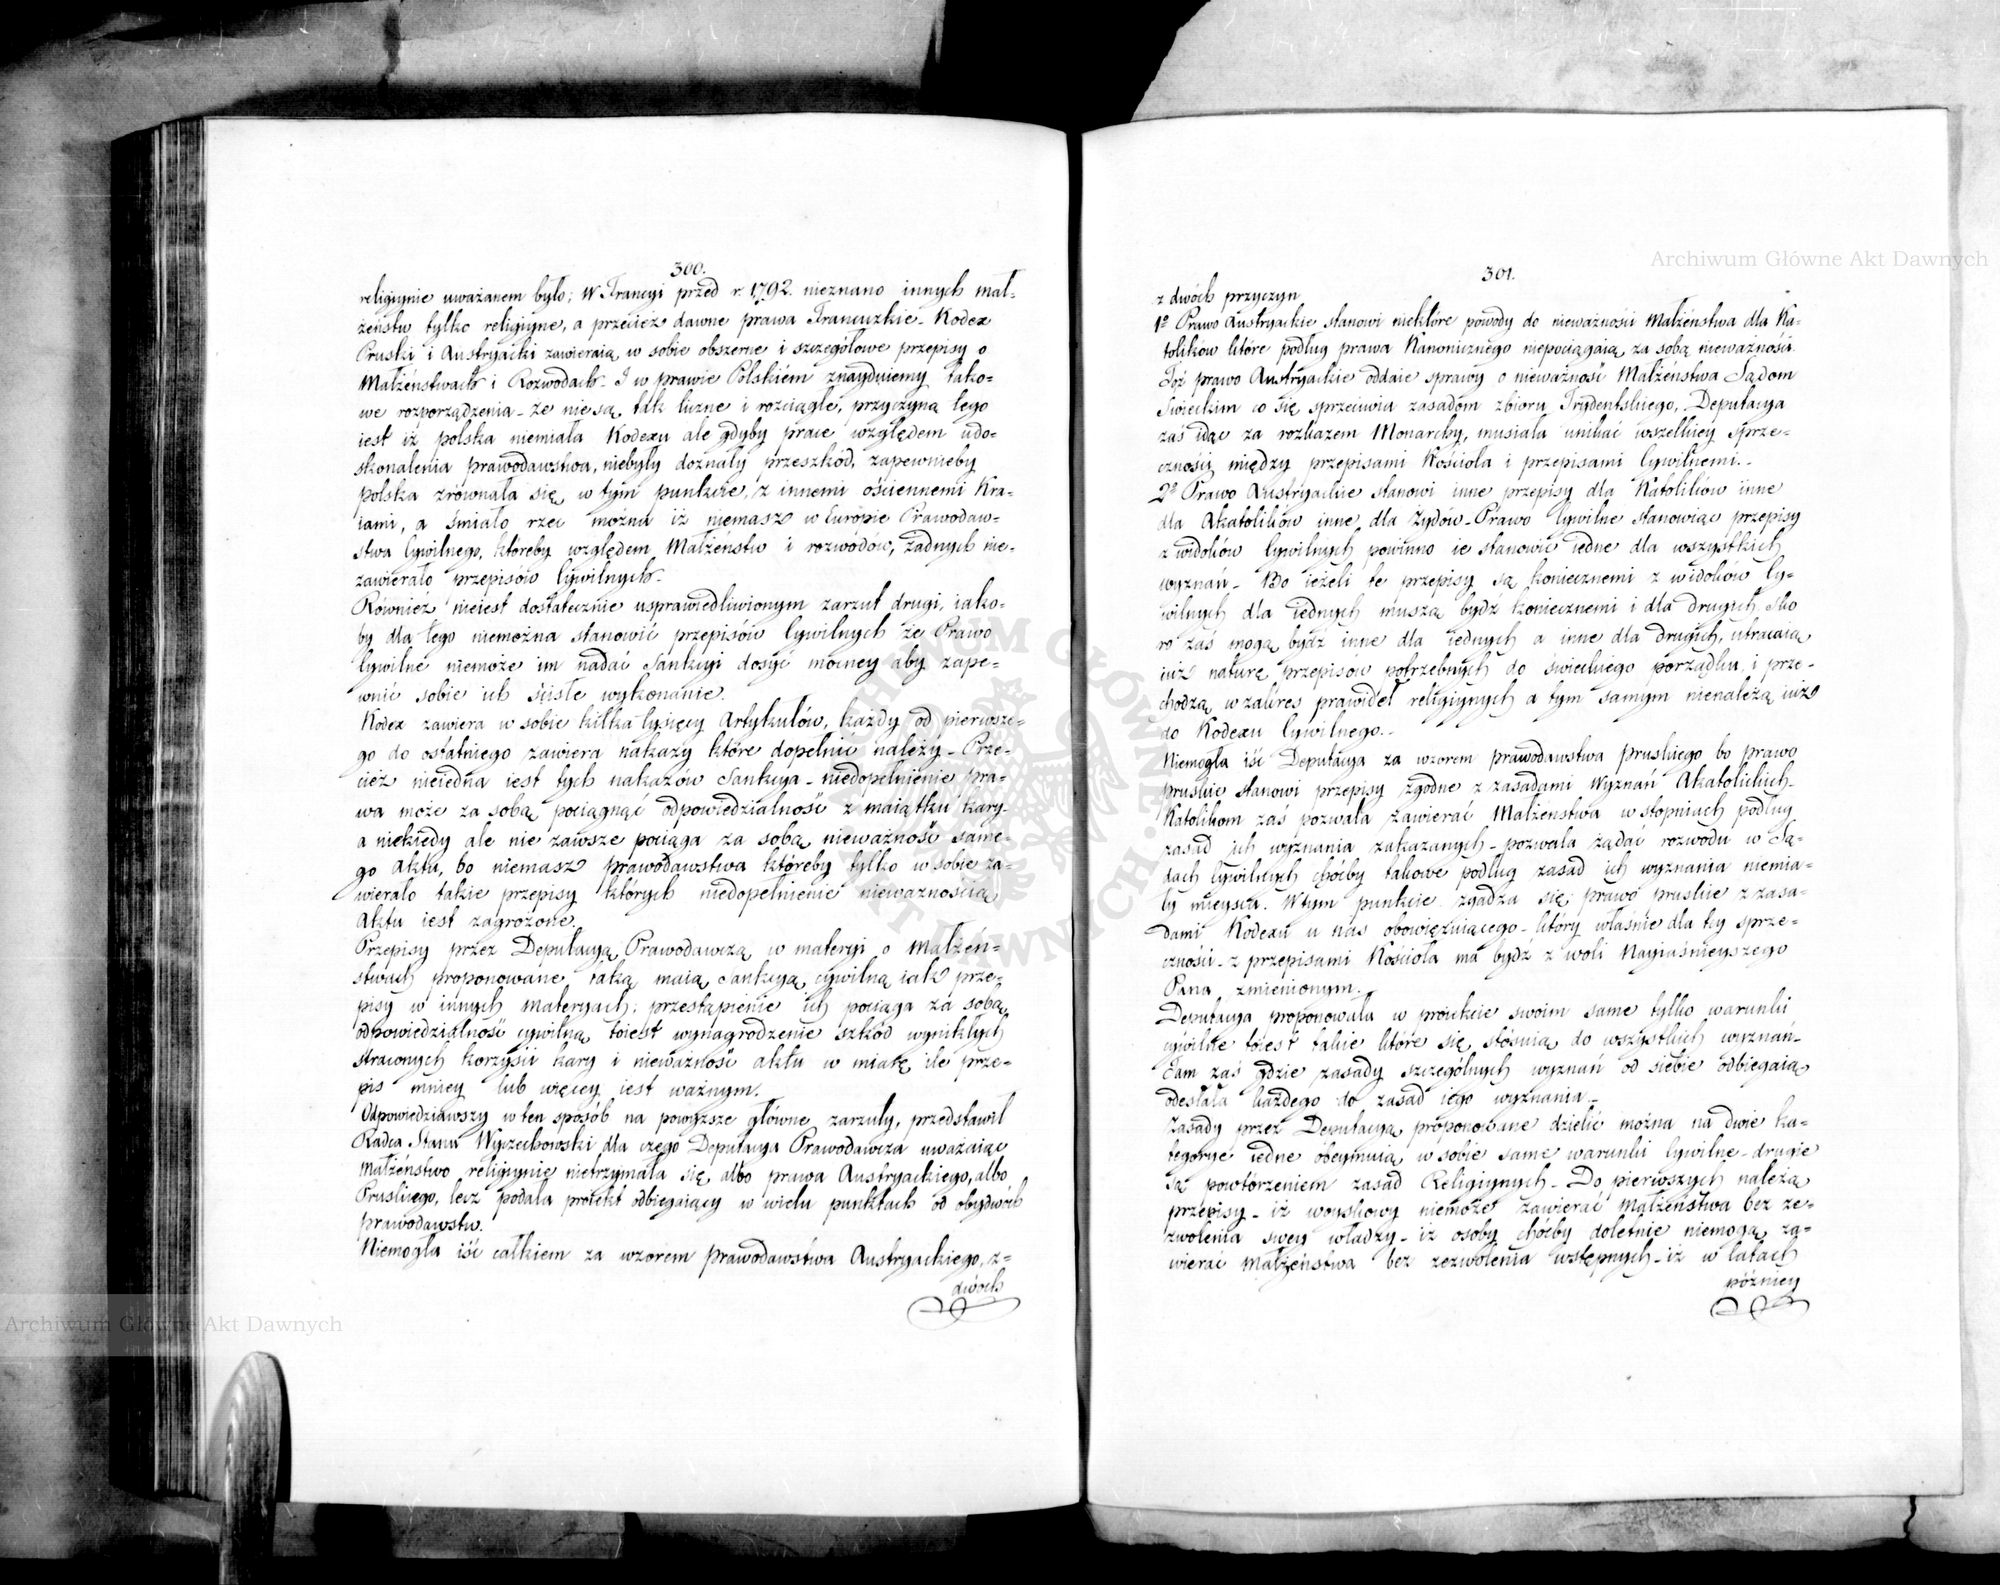 300.
religiynie uważanem było; w Francyi przed r. 1792. nieznano innych mał=
żeństw tylko religiyne, a przecież dawne prawa Francuzkie. Kodex
Pruski i Austryacki zawieraią w sobie obszerne i szczegółowe przepisy o
Małżeństwach i Rozwodach. I w prawie Polskiém znaydujemy tako=
we rozporządzenia - że nie są tak liczne i rozciągłe, przyczyną tego
iest iż polska niemiała Kodexu ale gdyby prace względem udo=
skonalenia prawodawstwa, niebyły doznały przeszkód, zapewnieby
polska zrównała się w tym punkcie, z innemi ościennemi Kra=
iami, a śmiało rzec można iż niemasz w Europie Prawodaw=
stwa Cywilnego, któreby względem Małżeństw i rozwodów, żadnych nie=
zawierało przepisów Cywilnych.
Również nieiest dostatecznie usprawiedliwionym zarzut drugi, iako=
by dla tego niemożna stanowić przepisów Cywilnych że Prawo
Cywilne niemoże im nadać Sankcyi dosyć mocney aby zape=
wnić sobie ich ścisłe wykonanie.
Kodex zawiera w sobie kilka tysięcy Artykułów, każdy od pierwsze=
go do ostatniego zawiera nakazy które dopełnić należy - Prze=
cież nieiedna iest tych nakazów Sankcya - niedopełnienie pra=
wa może za sobą pociągnąć odpowiedzialność z maiątku kary
a niekiedy ale nie zawsze pociąga za sobą nieważność same=
go Aktu, bo niemasz prawodawstwa któreby tylko w sobie za=
wierało takie przepisy których niedopełnienie nieważnością
Aktu iest zagrożone.
Przepisy przez Deputacyą Prawodawczą w materyi o Małżeń=
stwach proponowane taką maią Sankcyą cywilną iak prze=
pisy w innych materyach; przestąpienie ich pociąga za sobą
odpowiedzialność cywilną toiest wynagrodzenie szkód wynikłych
straconych korzyści kary i nieważność aktu w miarę ile prze=
pis mniey lub więcey iest ważnym.
Odpowiedziawszy w ten sposób na powyższe główne zarzuty, przedstawił
Radca Stanu Wyczechowski dla czego Deputacya Prawodawcza uważaiąc
Małżeństwo religiynie nietrzymała się albo prawa Austryackiego, albo
Pruskiego, lecz podała proiekt odbiegaiący w wielu punktach od obydwóch
prawodawstw.
Niemogła iść całkiem za wzorem prawodawstwa Austryackiego, z=
dwóch
301.
z dwóch przyczyn
1º Prawo Austryackie stanowi niektóre powody do nieważności Małżeństwa dla Ka=
tolików które podług prawa Kanonicznego niepociągaią za sobą nieważności.
Toż prawo Austryackie oddaie sprawy o nieważność Małżeństwa Sądom
Swieckim co się sprzeciwia zasadom zbioru Trydentskiego, Deputacya
zaś idąc za rozkazem Monarchy, musiała unikać wszelkiey sprze=
czności między przepisami Kościoła i przepisami Cywilnemi.
2º Prawo Austryackie stanowi inne przepisy dla Katolików inne
dla Akatolików inne dla Żydów - Prawo Cywilne stanowiąc przepisy
z widoków Cywilnych powinno ie stanowić iedne dla wszystkich
wyznań - Bo ieżeli te przepisy są koniecznemi z widoków Cy=
wilnych dla iednych muszą bydź koniecznemi i dla drugich. Sko
ro zaś mogą bydź inne dla iednych a inne dla drugich, utracaią
iuż naturę przepisów potrzebnych do świeckiego porządku, i prze=
chodzą w zakres prawideł religiynych a tym samym nienależą iuż
do Kodexu Cywilnego.
Niemogła iść Deputacya za wzorem prawodawstwa pruskiego bo prawo
pruskie stanowi przepisy zgodne z zasadami Wyznań Akatolickich.
Katolikom zaś pozwala zawierać Małżeństwa w stopniach podług
zasad ich wyznania zakazanych - pozwala żądać rozwodu w Są=
dach Cywilnych choćby takowe podług zasad ich wyznania niemia=
ły mieysca. W tym punkcie zgadza się prawo pruskie z zasa=
dami Kodexu u nas obowięzuiącego - który właśnie dla tey sprze=
czności z przepisami Kościoła ma bydź z woli Nayiaśnieyszego
Pana zmienionym.
Deputacya proponowała w proiekcie swoim same tylko warunki
cywilne toiest takie które się stósuią do wszystkich wyznań -
Tam zaś gdzie zasady szczególnych wyznań od siebie odbiegaią
odesłała każdego do zasad iego wyznania -
Zasady przez Deputacyą proponowane dzielić można na dwie ka=
tegorye iedne obeymuią w sobie same warunki Cywilne - drugie
są powtórzeniem zasad Religiynych - Do pierwszych należą
przepisy - iż woyskowy niemoże zawierać Małżeństwa bez ze=
zwolenia swey władzy - iż osoby choćby doletnie niemogą za=
wierać Małżeństwa bez zezwolenia wstępnych - iż w latach
później
Archiwum Główne Akt Dawnych
Archiwum Główne Akt Dawnych
ARCHIWUM GŁÓWNE AKT DAWNYCH